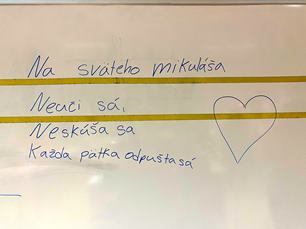 Na svätého mikuláša
Neuči sá,
Neskúša sa
Každa pätka odpušta sá